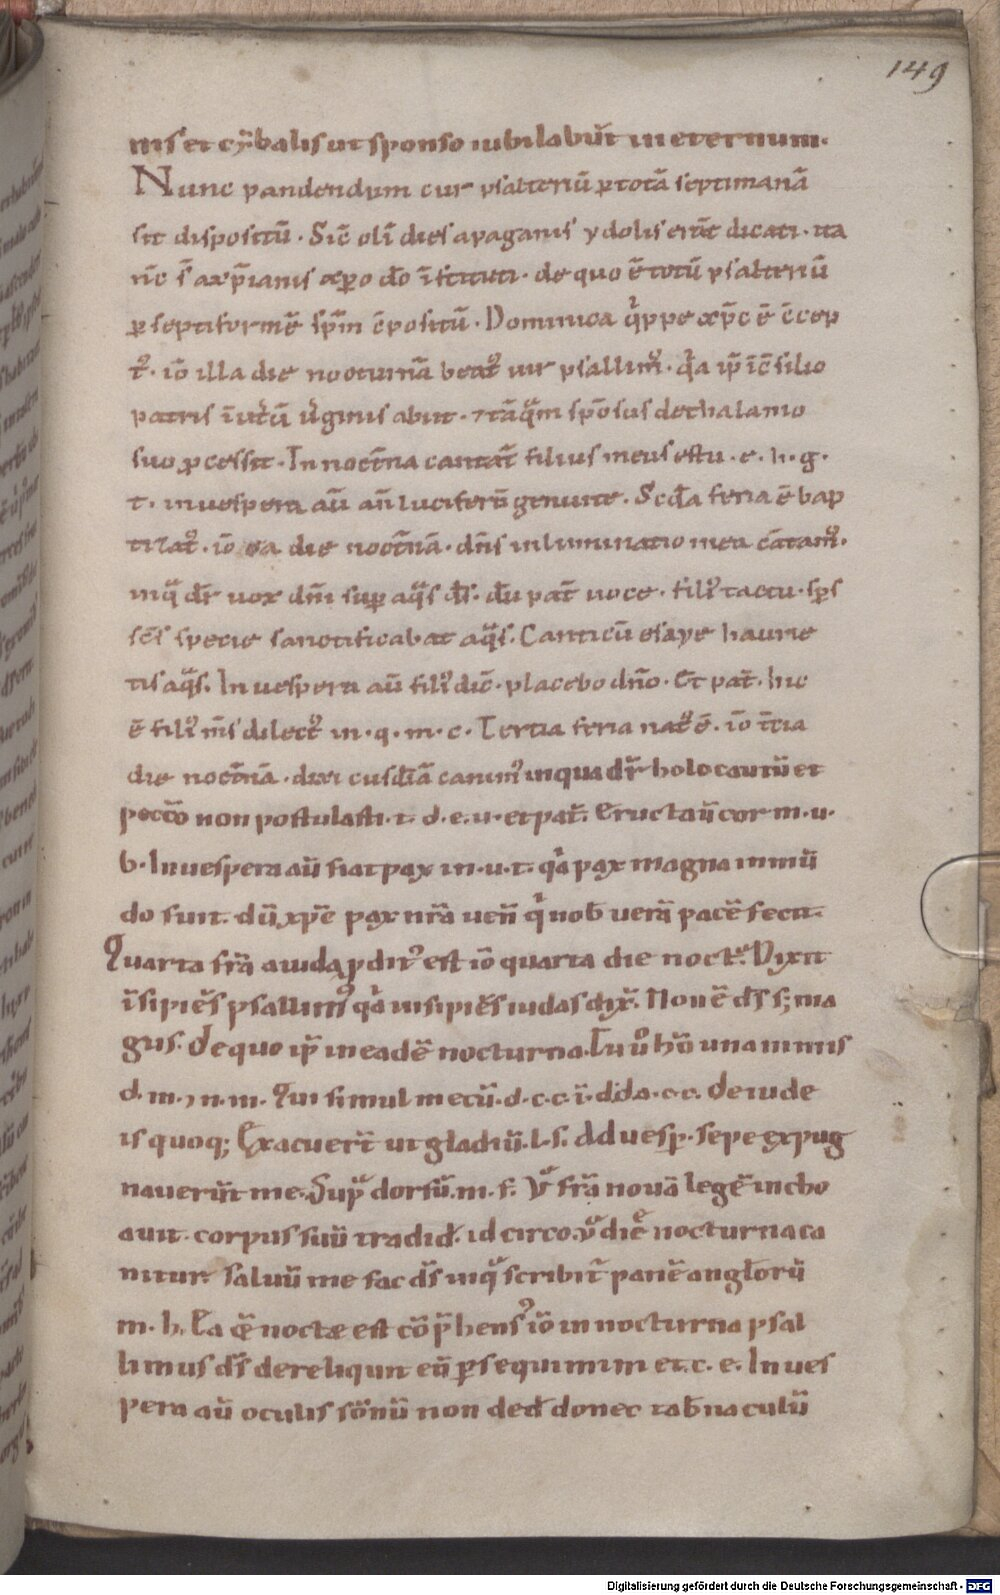 149
nis et cȳbalis ut sponso iubilabūt in eternum.
Nunc pandendum cur psalteriū p totā septimanā
sit dispositū. Sic̄ oli dies a paganis ydolis erāt dicati. ita
nc̄ s̄ a xp̄ianis xp̄o dō īstituti. de quo ē totū psalteriū
p septiformē spm̄ cpositū. Dominica qppe xp̄c ē ccep
t. iō illa die nocturnā beat uir psallim. qa ip̄ ic̄ silio
patris ī utū uginis abiit. ⁊ tāqm spōsus de thalamo
suo pcessit. In noct̄na cantāt filius meus es tu. e. h. g.
t. in uespera aū an̄ luciferū genui te. Scda feria ē bap
tizat. iō ea die noct̄nā. dn̄s inluminatio mea cātam.
in q dr̄ uox dn̄i sup aqs ds̄. dū pat̄ uoce. fili tactu. sp̄s
sc̄s specie sanctificabat aqs. Canticū esaye haurie
tis aqs. In uespera aū fili dic̄. placebo dn̄o. Et pat̄. hic
ē fili m̄s dilect in. q. m. c. Tertia feria nat ē. iō t̄cia
die noct̄nā. dixi cusdiā canim in qua dr̄ holocautū et
peccō non postulasti. t. d. e. u. et pat̄. Eructauī cor m. u.
b. In uespera aū fiat pax in. u. t. qa pax magna in mū
do fuit. dū xp̄e pax nr̄a uen̄ q nob̄ uerā pacē fecit.
Quarta fr̄a a iuda pdit est iō quarta die noct. Dixit
īsipiēs psallim qa insipiēs iudas dix̄. Non ē ds̄ s; ma
gus. de quo ip̄ in eadē nocturna. Tu u hō unanimis
d. m. ⁊ n. m. Qui simul mecū. d. c. c. ī. d̄. d̄a. c. c. de iude
is quoq; Exacuer̄t ut gladiū. l. s. ad uesp. sepe expug
nauerūt me. Sup dorsū. m. f. V fr̄a nouā legē incho
auit. corpus suū tradid̄. idcirco. v die nocturna ca
nitur. saluū me fac ds̄ in q scribit̄ panē angl̄orū
m. h. Ea q nocte est cōp̄hens iō in nocturna psal
limus ds̄ dereliqut eū psequimini et. c. e. In ues
pera aū oculis sōnū non ded̄ donec tab̄naculū
Digitalisierung gefördert durch die Deutsche Forschungsgemeinschaft - DFG